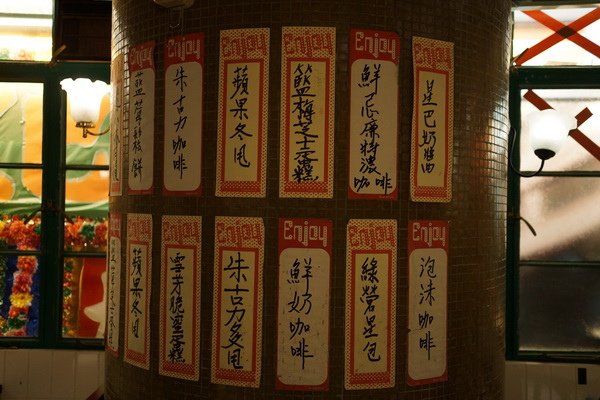 Enjoy
Enjoy
朱古力咖啡
Enjoy
蘋果冬甩
Enjoy
籃梅芝士蛋糕
Enjoy
鮮忌廉特濃咖啡
Enjoy
星巴奶醬
Enjoy
蘋果冬甩
Enjoy
蛋糕
Enjoy
朱古力多甩
Enjoy
鮮奶咖啡
Enjoy
星包
Enjoy
泡沫咖啡